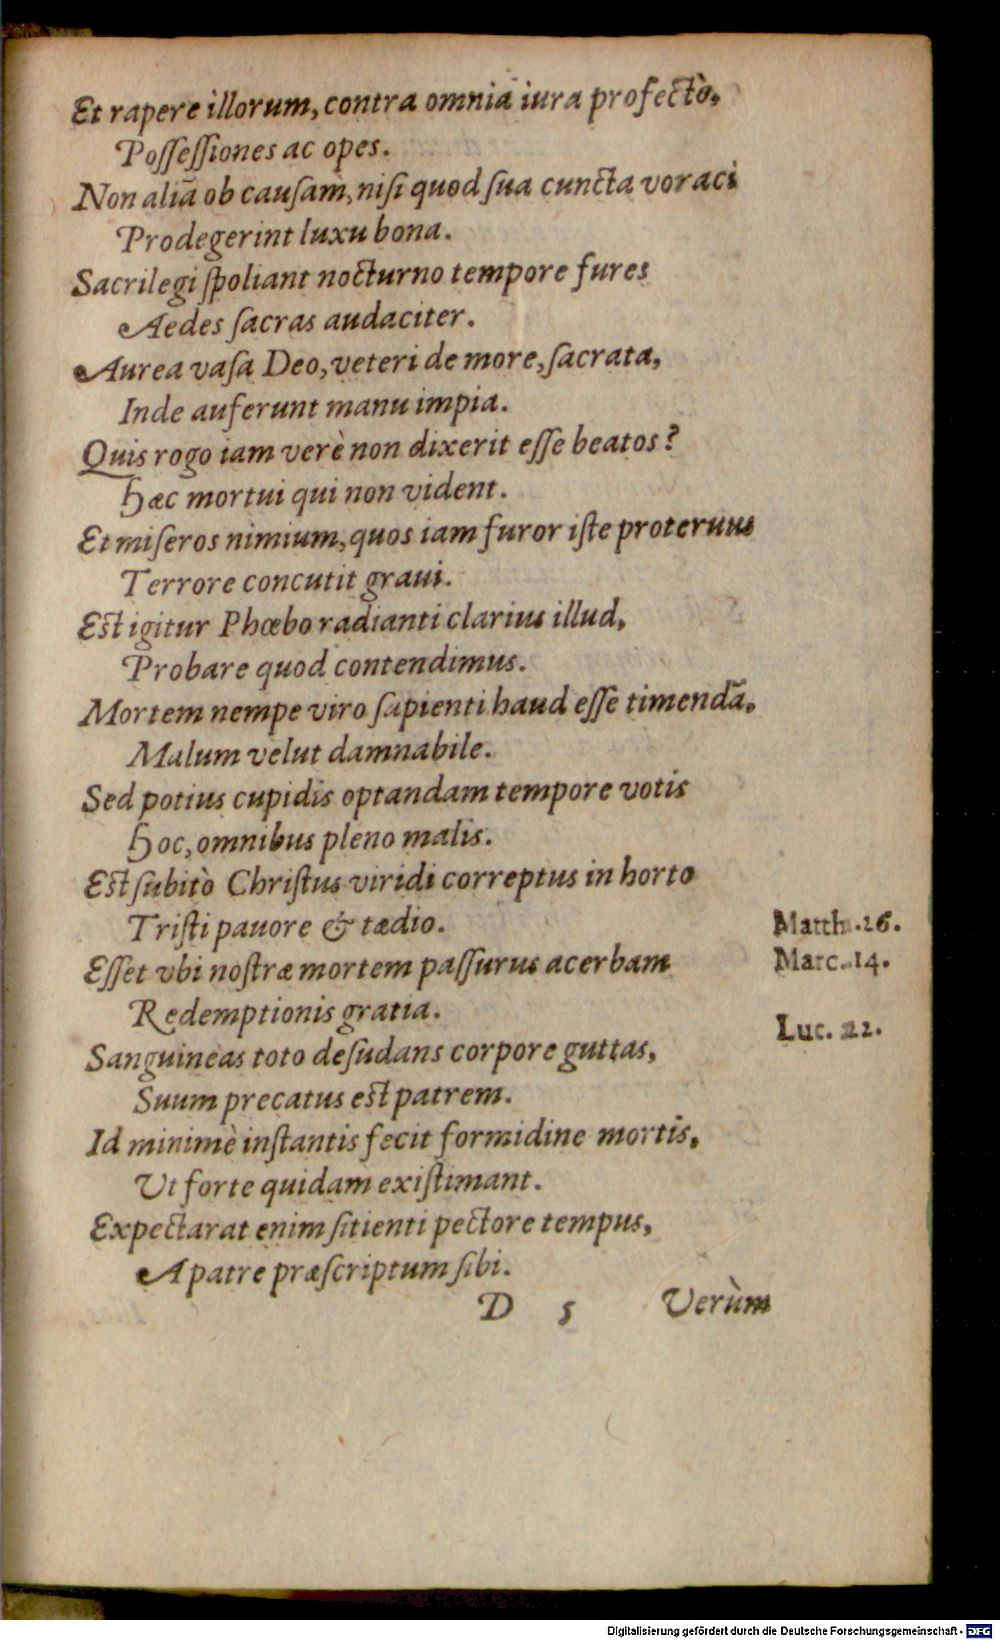 Et rapere illorum, contra omnia iura profectò,
Poſſeſſiones ac opes.
Non aliā ob cauſam, niſi quod ſua cuncta voraci
Prodegerint luxu bona.
Sacrilegi ſpoliant nocturno tempore fures
Aedes ſacras audaciter.
Aurea vaſa Deo, veteri de more, ſacrata,
Inde auferunt manu impia.
Quis rogo iam verè non dixerit eſſe beatos?
Hæc mortui qui non vident.
Et miſeros nimium, quos iam furor iſte proteruus
Terrore concutit graui.
Est igitur Phœbo radianti clarius illud,
Probare quod contendimus.
Mortem nempe viro ſapienti haud eſſe timendā,
Malum velut damnabile.
Sed potius cupidis optandam tempore votis
Hoc, omnibus pleno malis.
Est ſubitò Chriſtus viridi correptus in horto
Triſti pauore & tædio.
Matth. 26.
Eſſet vbi noſtræ mortem paſſurus acerbam
Marc. 14.
Redemptionis gratia.
Luc. 22.
Sanguineas toto deſudans corpore guttas,
Suum precatus est patrem.
Id minimè inſtantis fecit formidine mortis,
Ut forte quidam exiſtimant.
Expectarat enim ſitienti pectore tempus,
A patre præſcriptum ſibi.
D 5 Verùm
Digitalisierung gefördert durch die Deutsche Forschungsgemeinschaft - DFG